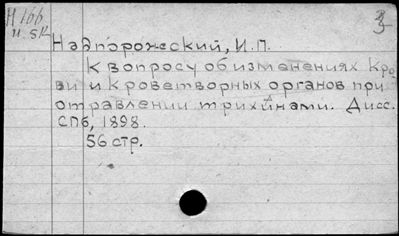 Надпорожский, И.П.
К вопросу об изменениях кро-
ви и кроветворных органов при
отравлении трихинами. Дисс.
СПб, 1898.
56 стр.